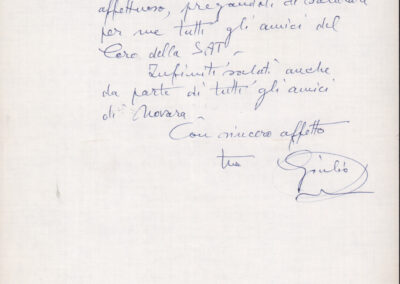 affettuoso, pregandoti di salutare
per me tutti gli amici del
Coro della SAT –
Infiniti saluti anche
da parte di tutti gli amici
di Novara –
Con sincero affetto
tuo Giulio